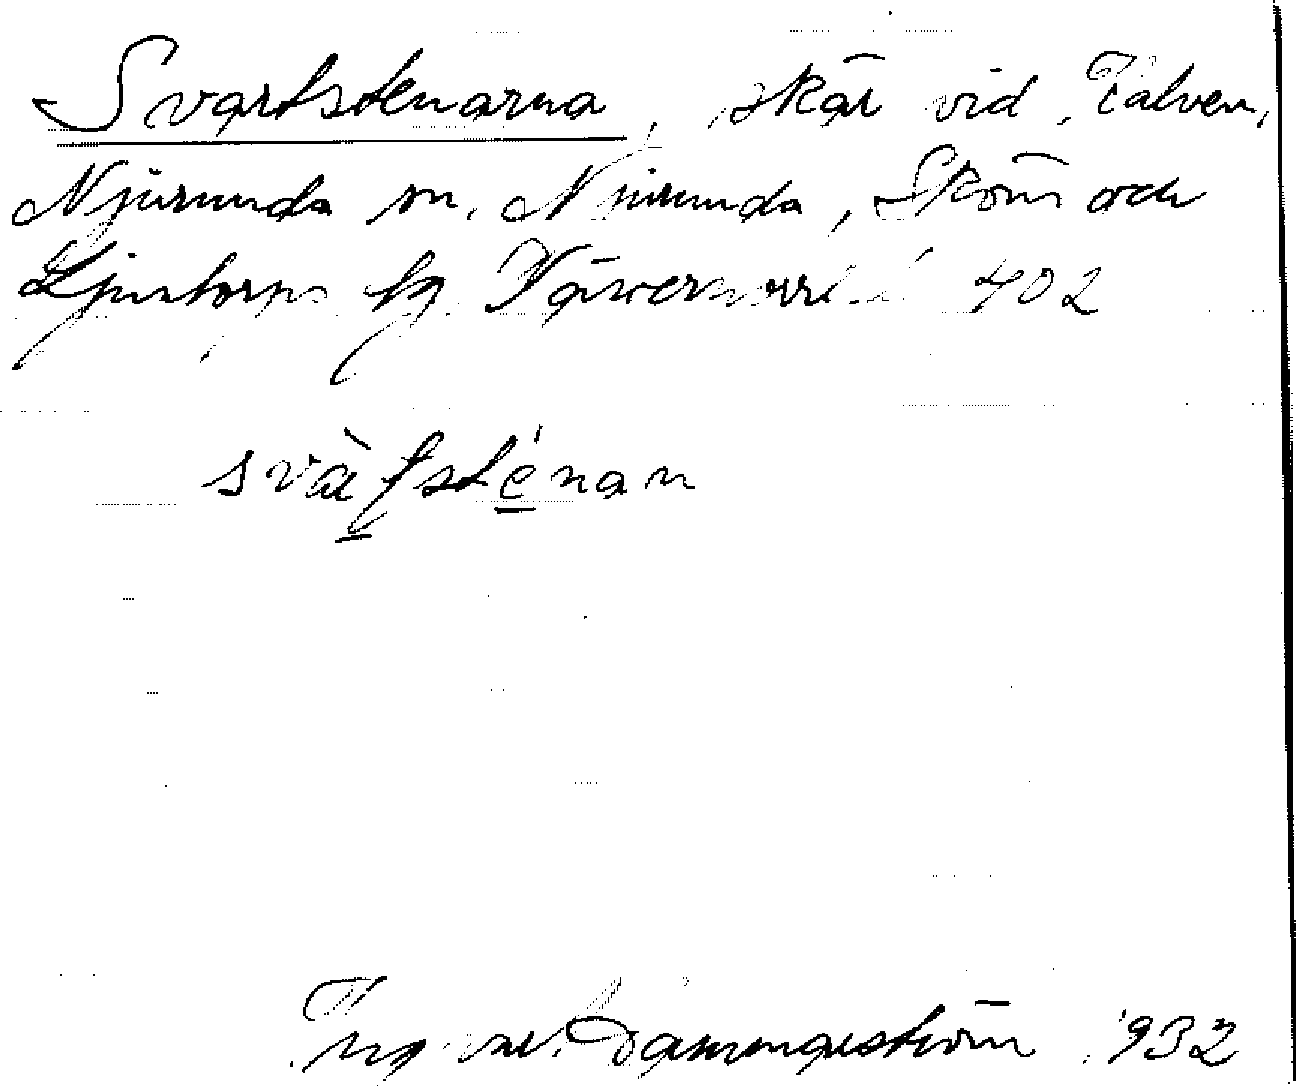 Svartstenarna, skär vid Tälven,
Njurunda sn. Njurunda, Sköns och
Ljustorps tg Västernorrl. l. 402
svàʈsténan
Ingvar 1932